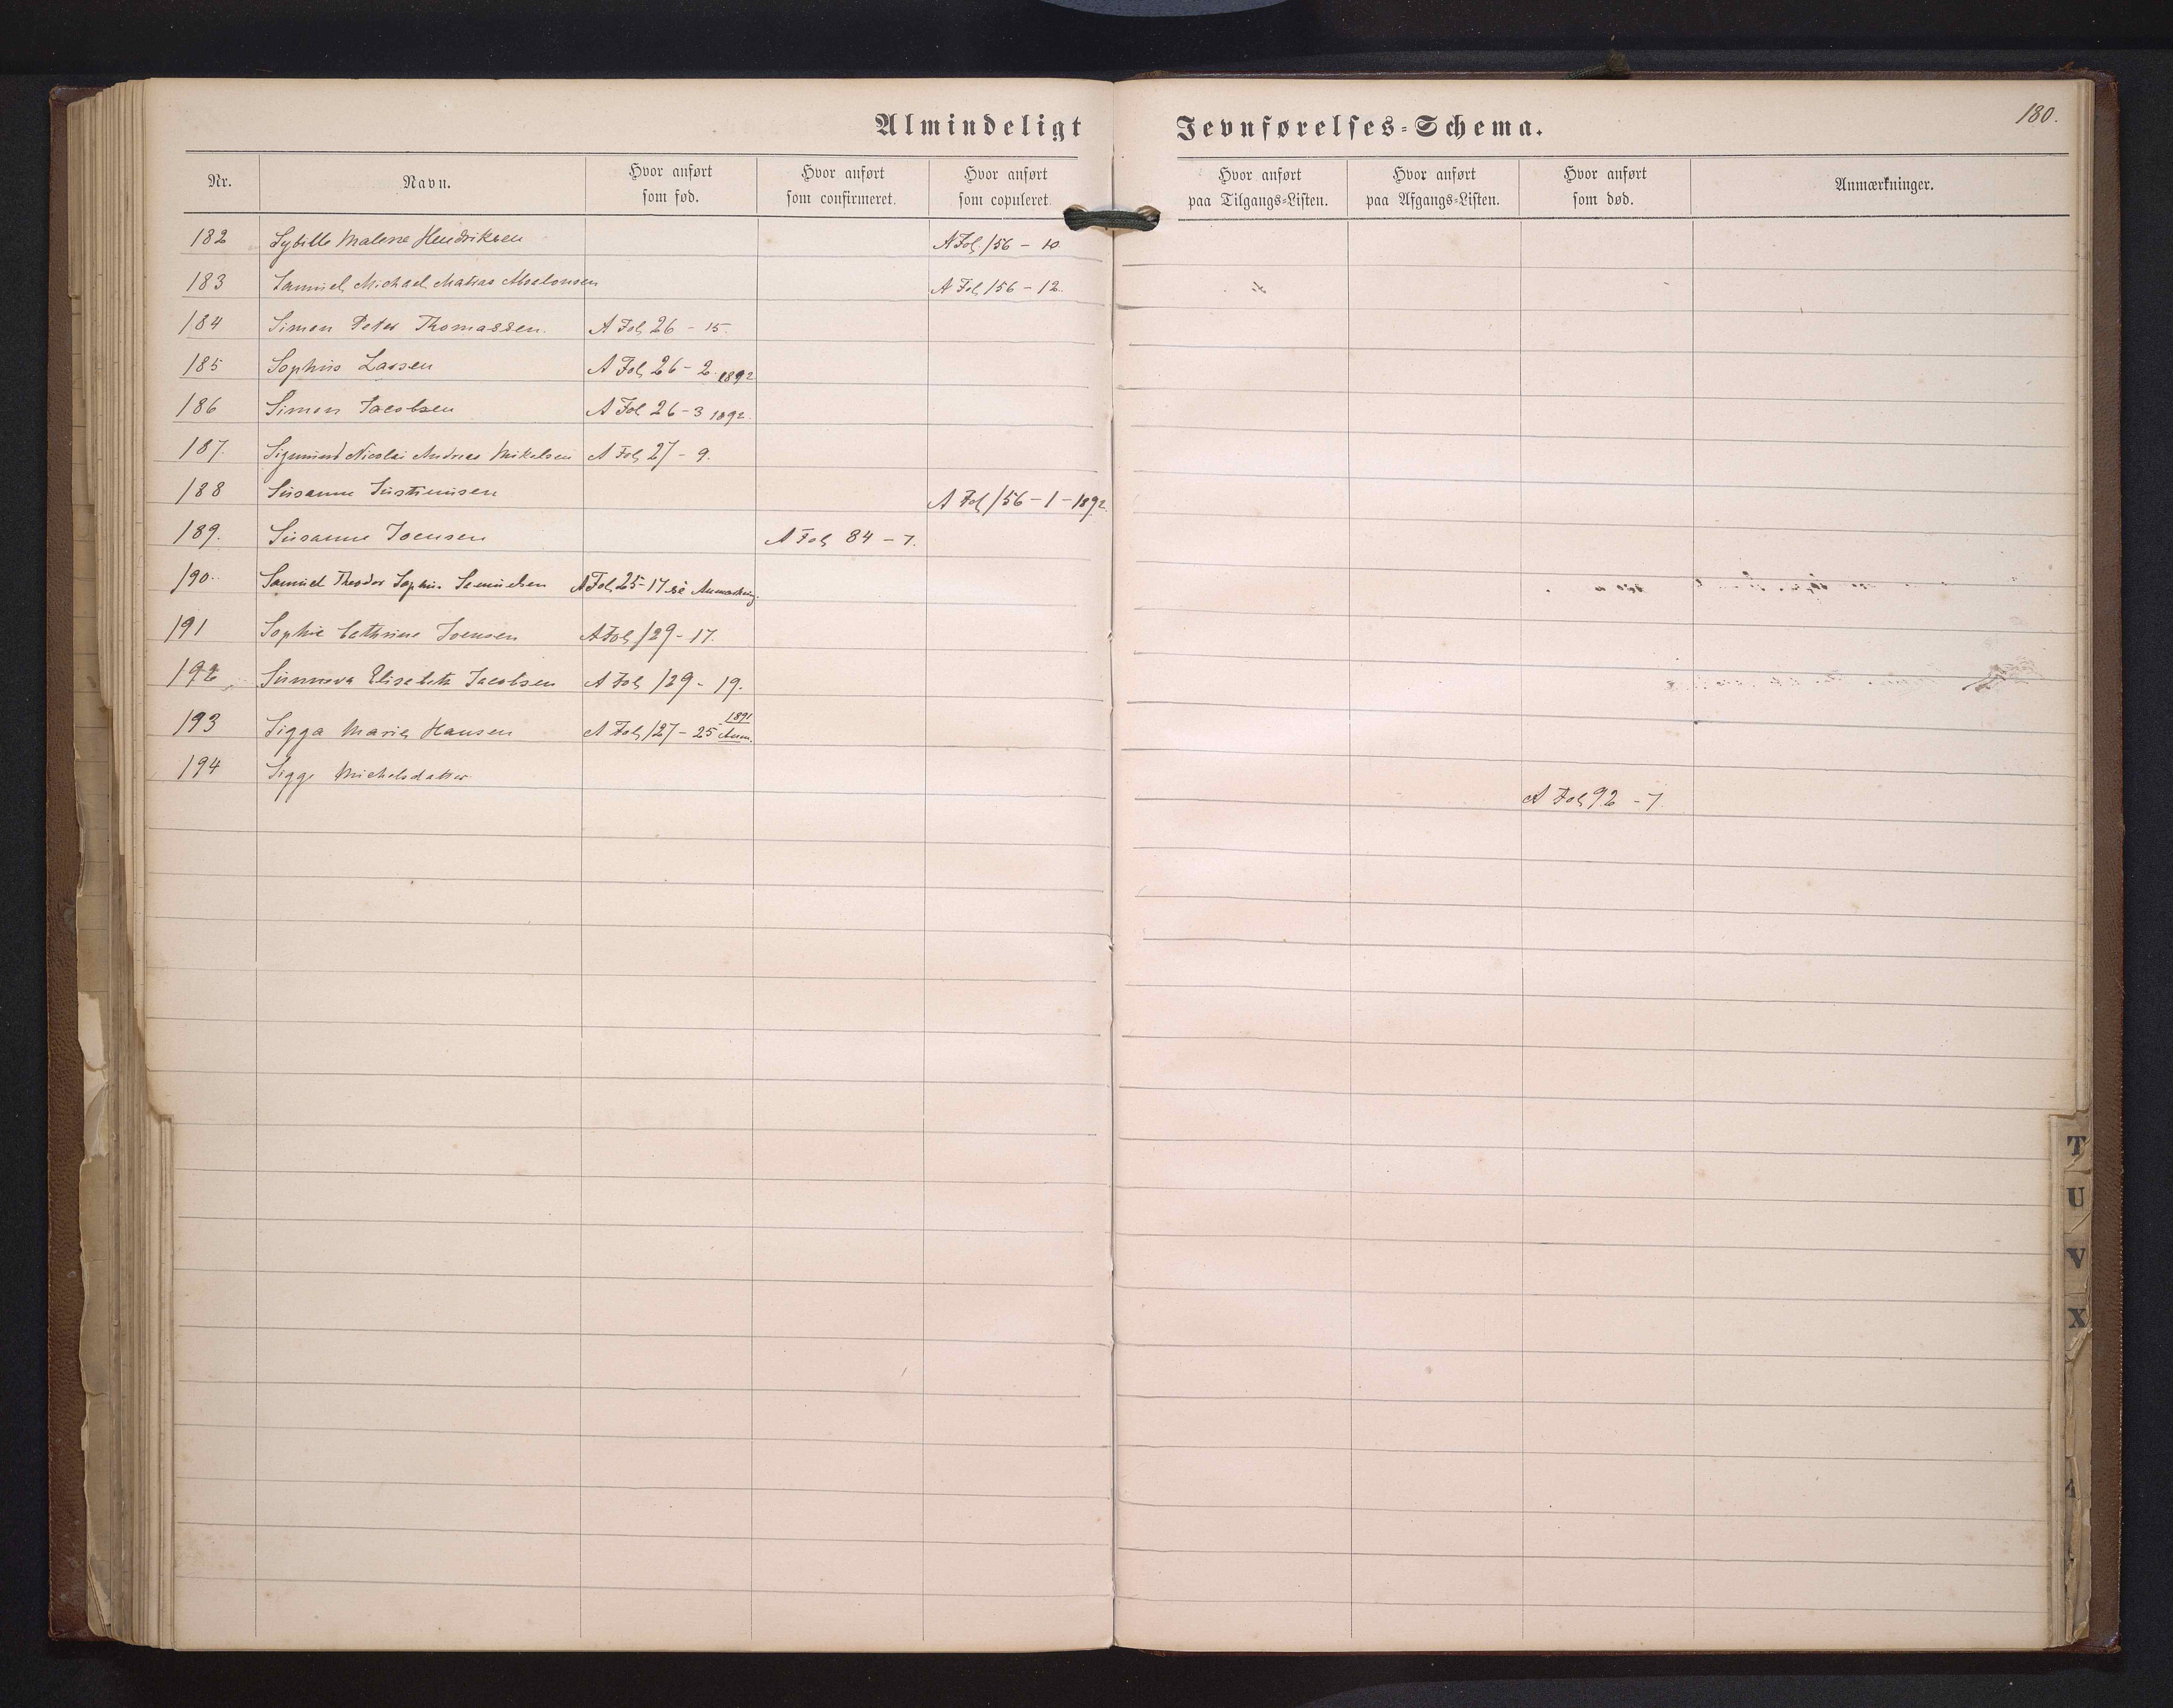 Almindeligt Jevnførelses=Schema.
180.
Nr. Navn. Hvor anført som fød. Hvor anført som confirmeret. Hvor anført som copuleret. Hvor anført paa Tilgangs=Listen. Hvor anført paa Afgangs=Listen. Hvor anført som død. Anmærkninger.
182 Sybille Malene Hendriksen A Fol 156 - 10
183 Samuel Michael Matias A Fol 156 - 12.
184 Simon Peter Thomassen. A Fol 26 - 15.
185 Sophus Lassen A Fol 26 - 2. 1892
186 Simon Jacobsen A Fol 26 - 3 1892.
187. Sigmund Nicolai Andreas Mikelsen A Fol 27 - 9.
188 Susanne Justinusen A Fol 156 - 1 - 1892.
189. Susanne Joensen A Fol 84 - 7.
190. Samuel Theodor Sophus Samuelsen A Fol 25 - 17 se Anmærkning.
191 Sophie Cathrine Joensen A Fol 129 - 17.
192 Sunneva Elisabeth Jacobsen A Fol 129 - 19.
193 Sigga Maria Hansen A Fol 127 - 25 1891 Anm.
194 Sigge Michelsdatter A Fol 92 - 7
T
U
V
X